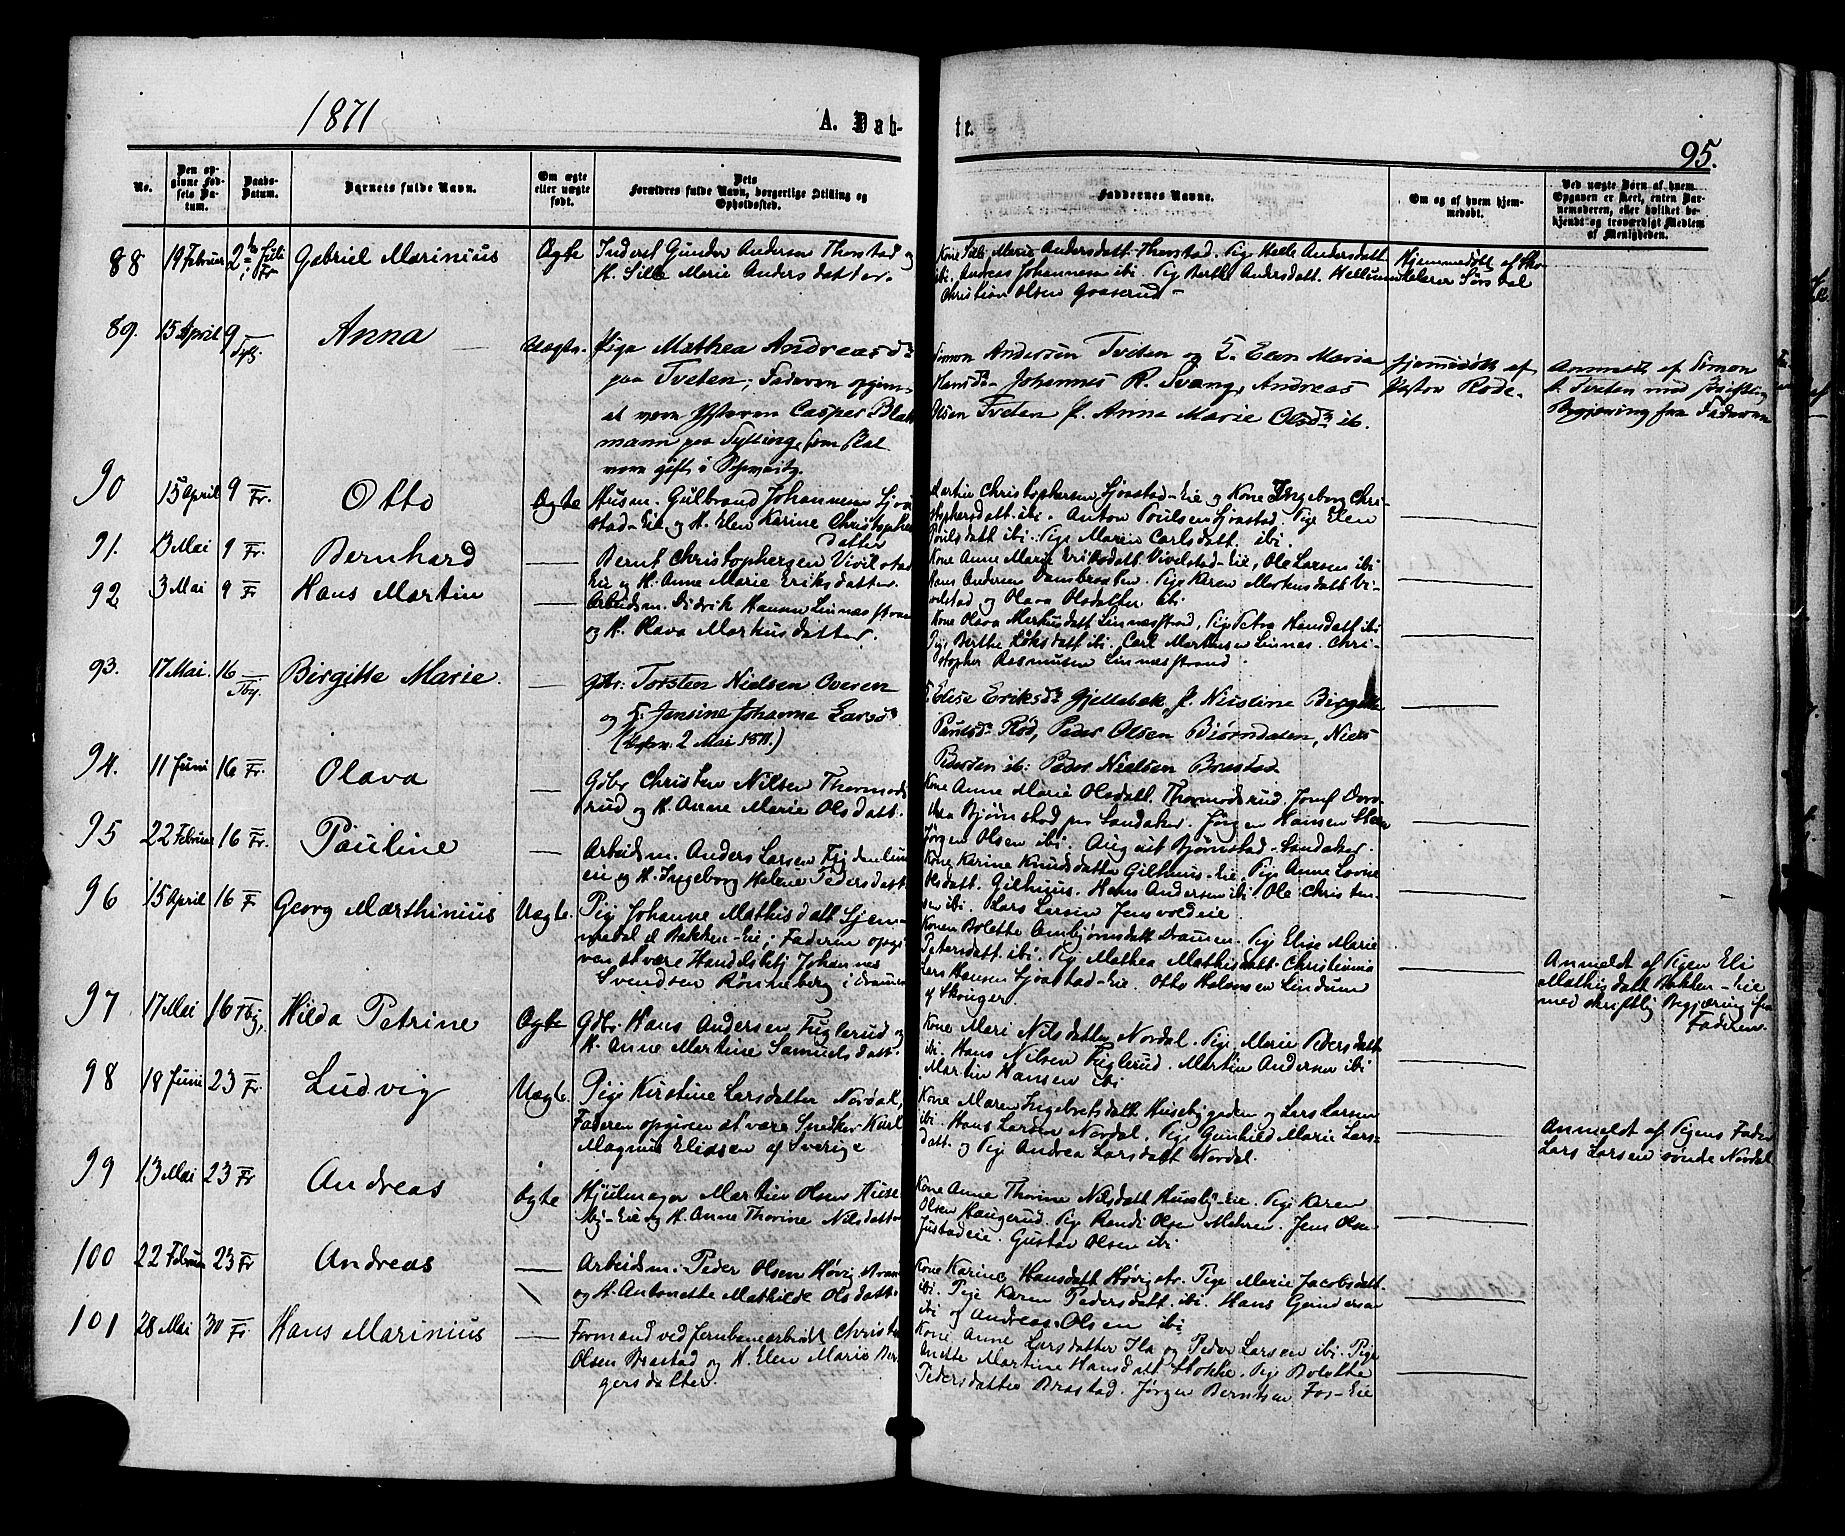 1871
A. Døb-
te.
95.
No.
Den op-
givne Fød-
sels Da-
tum.
Daabs-
Datum.
Barnets fulde Navn.
Om ægte
eller uægte
født.
Dets
Forældres fulde Navn, borgerlige Stilling og
Opholdssted.
Faddernes Navne.
Om og af hvem hjem-
medøbt.
Ved uægte Børn af hvem
Opgaven er skeet, enten Bar-
nemoderen, eller hvilket be-
kjendt og troværdigt Medlem
af Menigheden.
88 19 Februar Gabriel Marinius Ægte Inderst Gunder Andersen Thorstad og
H. Sille Marie Andersdatter.
Kone Sille Marie Andersdatt. Thorstad. Pige Helle Andersdatt.
ibi. Andreas Johannesen ibi. Pige Berthe Andersdatt. Hellum
Christian Olsen Graserud
Hjemmedøbt af
89. 15 April 9 Anna Uægte. Piga Mathea Andreasd.
paa Tveten; Faderen opgiv-
et være Casper
mann paa Tyfting, som skal
være gift i Schweitz.
Simon Andersen Tveten og K. Elen Maria
Hansd. Johannes R. Svang, Andreas
Olsen Tveten P. Anna Marie Olsd. ib.
hjemmedøbt af
Pastor Rode.
Anmeldt af Simon
A. Tveten med skriftlig
Begjæring fra Faderen
90 15 April 9 Fr. Otto Ægte Husm. Gulbrand Johannesen Sjøa-
stad-Eie og H. Elen Karine Christopher
datter
Martin Christophersen Sjøastad-Eie og Kone Ingeborg Chri-
stophersdatt. ibi. Anton Poulsen Sjøastad. Pige Elen
Poulsdatt ibi. Pige Marie Carlsdatt. ibi.
91. 13 Mai 9 Fr. Bernhard Bernt Christophersen Vivilstad
Eie og H. Anne Marie Eriksdatter.
Kone Anne Marie Eriksdatt. Vivelstad-Eie, Ole Larsen ibi
Hans Andersen Dambraaten. Pige Karen Markusdatt Vi-
velstad og Olava Olsdatter ibi
92 3 Mai 9 Fr Hans Martin Arbeidsm. Didrik Hansen Linnesstrand
og H. Olava Markusdatter.
Kone Olava Markusdatt Linnesstrand, Pige Petra Hansdatt ibi
Pige Berthe ibi. Carl Martinsen Linnes. Chri-
stopher Rasmusen Linnesstrand.
93. 17 Mai. 16 Tbg. Birgitte Marie. Gbr. Torsten Nielsen Overen
og K. Jensine Johanna Larsd.
2 Mai 1871.)
K. Elise Eriksd. Gjellebæk, P. Nicoline Birgitte
Paulsd. Rød, Peder Olsen Biørndalen, Niels
Pedersen ib. Peder Nielsen Brastad.
94. 11 Juni 16 Fr. Olava Gdbr Christen Nilsen Thormods-
rud og H. Anne Marie Olsdatt.
Kone Anne Marie Olsdatt. Thormodsrud. Josef Doro-
thea Bjørnstad per Sandaker. Jørgen Hansen
Jørgen Olsen ibi. August Bjørnstad-Sandaker.
95 22 Februar 16 Fr. Pauline Arbeidsm. Anders Larsen
en og H. Ingeborg Helene Pedersdatt.
Kone Karine Knudsdatter Gilhuus-Eie. Pige Anne Lovise
Olsdatt. Gilhuus. Hans Andersen ibi. Ole Christen-
sen ibi. Lars Larsen Jensvoldeie.
96 15 April 16 F Georg Marthinius Uægte. Pige Johanne Mathisdatt Sjem-
medal el Bakken-Eie; Faderen opgi
ven at være Handelsbetj Johannes
Svendsen Rønneberg i Dramen
Konen Bolette Ambjørnsdatt Dramen. Pige Elise Marie
Petersdatt. ibi. Pige Mathea Mathisdatt. Christiania
Lars Hansen Sjøastad-Eie. Otto Halvorsen Lindum
af Skouger
Anmeldt af Pigen Eli
Mathisdatt Bakken-Eie
med skriftlig Begjæring fra
Faderen.
97 17 Mai 16 Tbg, Hilda Petrine Ægte Gdbr. Hans Andersen Fuglerud og
H. Anne Martine Samuelsdatt.
Kone Mari Nilsdatter Nordal. Pige Marie Pedersdatt.
ibi. Hans Nilsen Fuglerud. Martin Andersen ibi
Martin Hansen ibi
98 18 Juni 23 Fr. Ludvig Uægte. Pige Kirstine Larsdatter Nordal,
Faderen opgiven at være Snedker Karl
Magnus Eliasen af Sverige
Kone Maren Ingebretsdatt Husebygaden og Lars Larsen
ibi. Hans Larsen Nordal. Pige Gunhild Marie Lars-
datt. og Pige Andrea Larsdatt Nordal.
Anmeldt af Pigens Fader
Lars Larsen søndre Nordal
99 13 Mai 23 Fr Andreas Ægte Hjulmager Martin Olsen Huse-
by-Eie og H. Anne Thorine Nilsdatter
Kone Anne Thorine Nilsdatt Huseby-Eie. Pige Karen
Olsen Haugerud. Pige Randi Olsen Mehren. Jens Olsen
Justadeie. Gustav Olsen ibi
100 22 Februar 23 Fr Andreas Arbeidsm. Peder Olsen Høvig
og H. Antonette Mathilde Olsdatt.
Kone Karine Hansdatt Høvig str. Pige Marie Jacobsdatt.
ibi. Pige Karen Pedersdatt. ibi. Hans Gundersen
ibi og Andreas Olsen ibi
101 28 Mai 30 Fr. Hans Marinius Formand ved Jernbanearbeidet Christen
Olsen Brastad og H. Elen Marie Ber-
gersdatter.
Kone Anne Larsdatter Ila og Peder Larsen ibi. Pige
Andte Martine Hansdatt Stokke. Pige Bolette
Pedersdatter Brastad. Jørgen Berntsen Fos-Eie